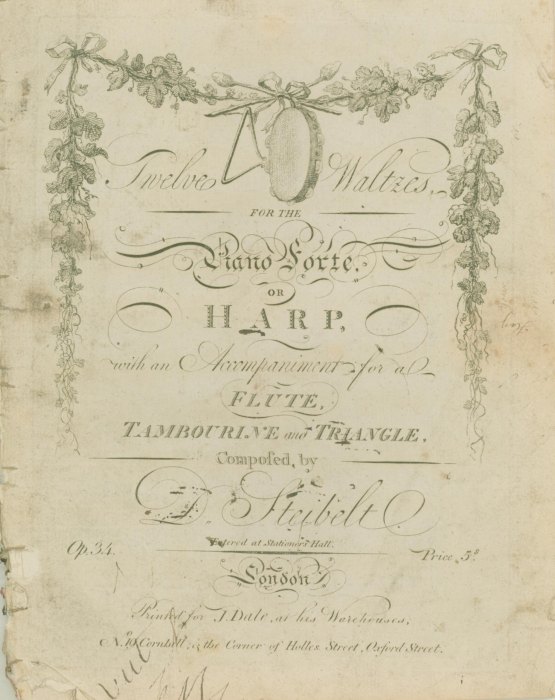 Twelve Waltzes,
FOR THE
Piano Forte,
OR
HARP,
with an Accompaniment for a
FLUTE,
TAMBOURINE and TRIANGLE,
Compoſed, by
D. Steibelt
Entered at Stationers Hall.
Op. 34.
Price 5s
London
Printed for J. Dale, at his Warehouses,
No. 19 Cornhill, & the Corner of Holles Street, Oxford Street.